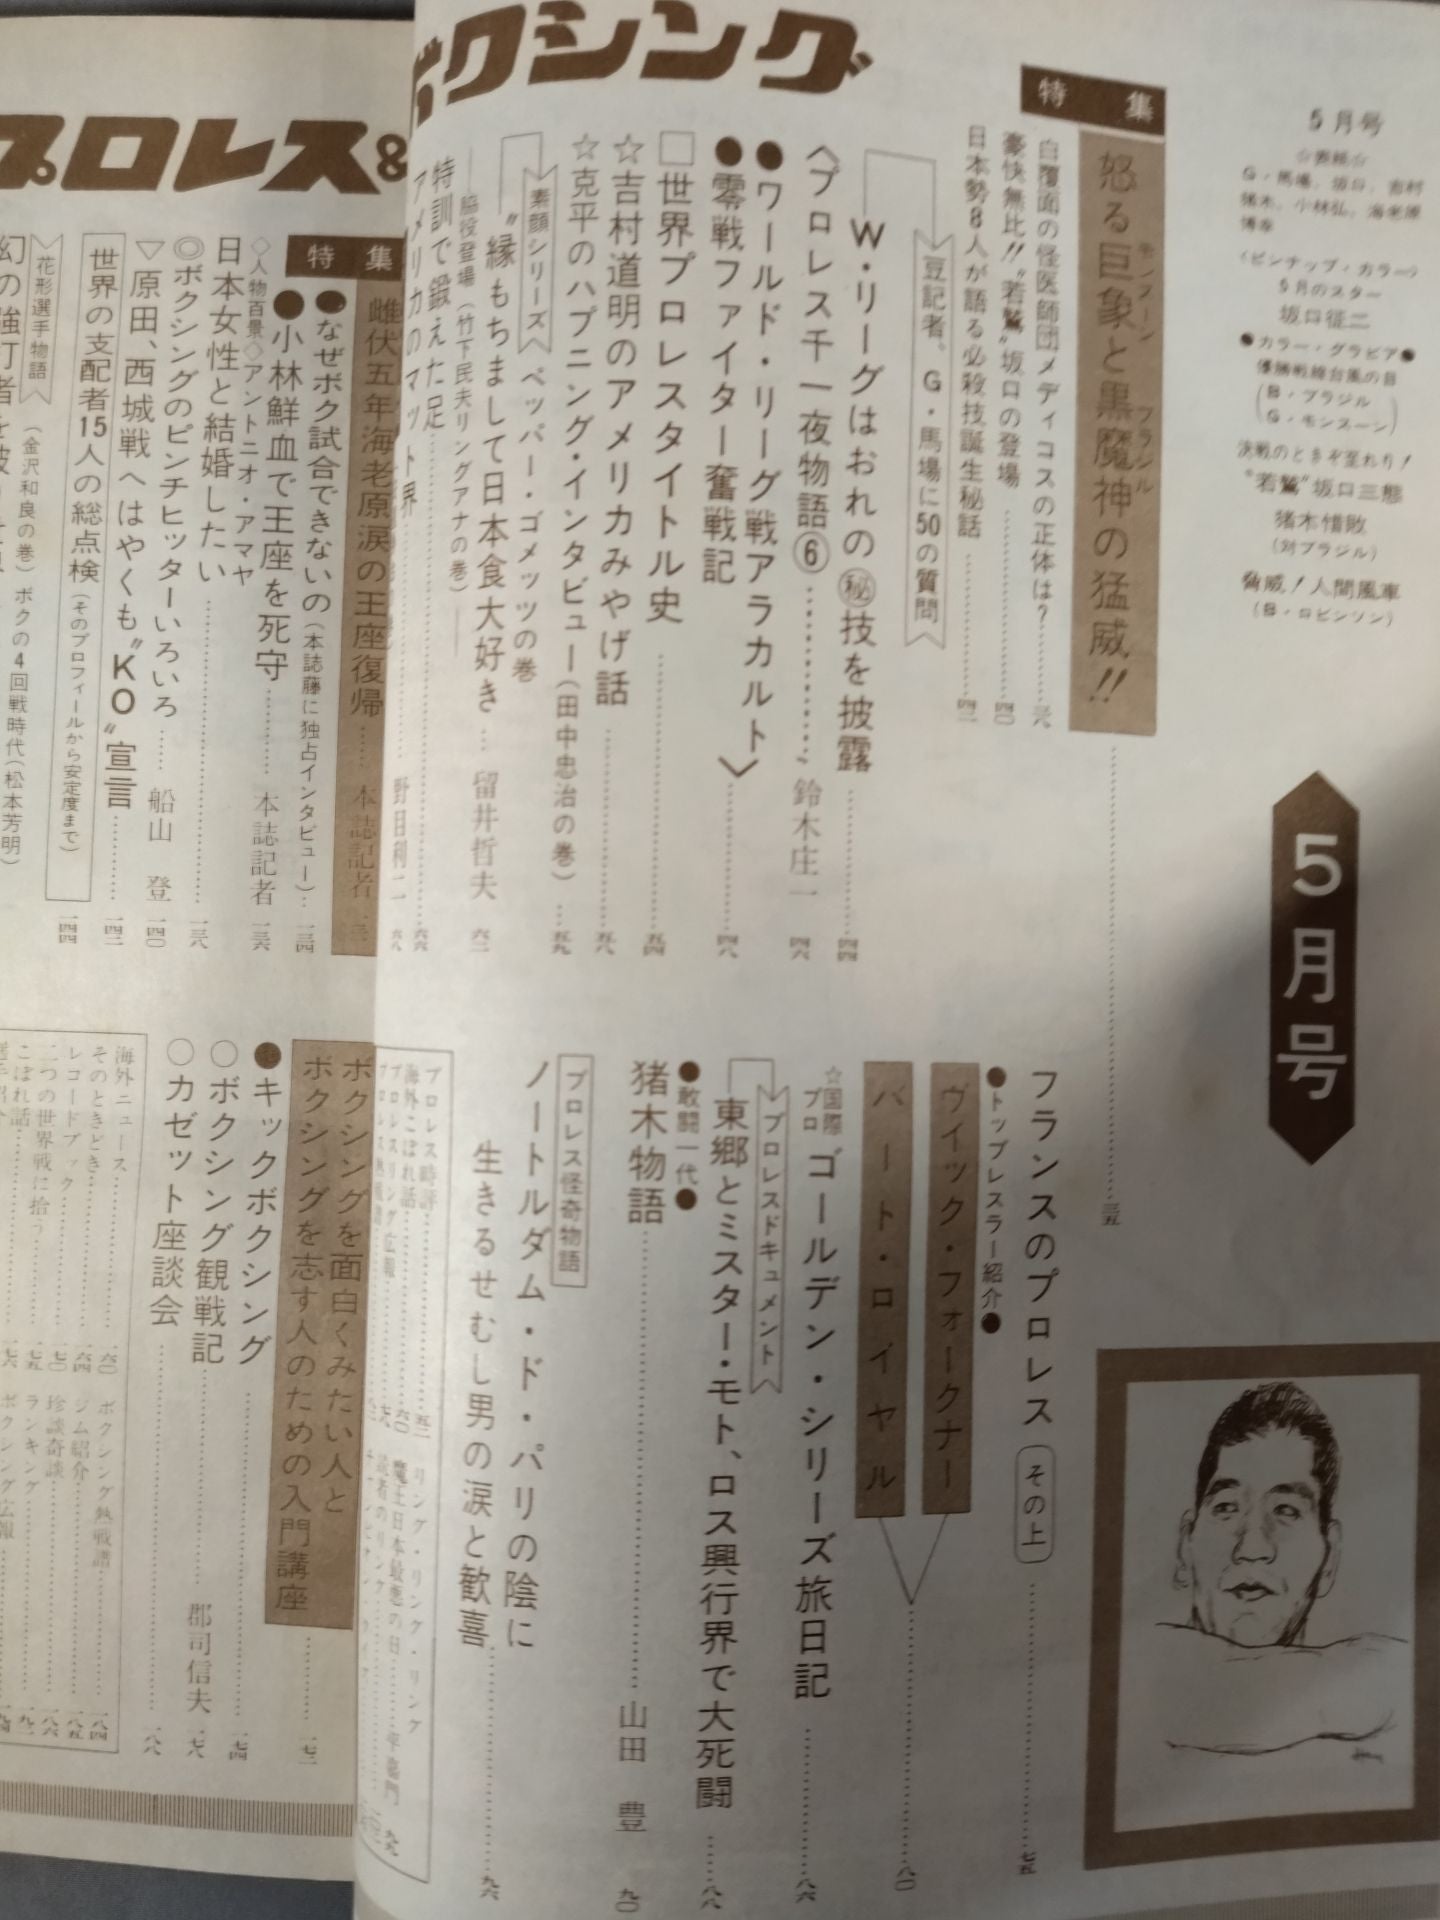 プロレス&ボクシング
5月号
☆表紙☆
G・馬場、坂口、吉村
猪木、小林弘、海老原
博幸
〈ピンナップ・カラー〉
5月のスター
坂口征二
●カラー・グラビア●
優勝戦線台風の目
(B・ブラジル
G・モンスーン)
決戦のときぞ至れり!
"若鷲"坂口三態
猪木惜敗
(対ブラジル)
脅威!人間風車
(B・ロビンソン)
5月号
特集
怒る巨象と黒魔神の猛威!!
モンスーン
ブラジル
三五
白覆面の怪医師団メディコスの正体は?
豪快無比!!"若鷲"坂口の登場 四〇
日本勢8人が語る必殺技誕生秘話 四二
豆記者、G・馬場に50の質問
W・リーグはおれの㊙技を披露 四四
〈プロレス千一夜物語⑥ 鈴木庄一 四六
●ワールド・リーグ戦アラカルト〉
●零戦ファイター奮戦記 四八
□世界プロレスタイトル史 五四
☆吉村道明のアメリカみやげ話 五八
☆克平のハプニング・インタビュー(田中忠治の巻) 五九
素顔シリーズ ペッパー・ゴメッツの巻
"縁もちまして日本食大好き 留井哲夫 六二
脇役登場(竹下民夫リングアナの巻)
特訓で鍛えた足 六六
アメリカのマット界 野日利二 六八
フランスのプロレス その上 七五
●トップレスラー紹介●
ヴィック・フォークナー
バート・ロイヤル 八〇
☆国際プロ ゴールデン・シリーズ旅日記 八六
プロレスドキュメント
東郷とミスター・モト、ロス興行界で大死闘 八八
●敢闘一代●
猪木物語 山田 豊 九〇
プロレス怪奇物語
ノートルダム・ド・パリの陰に
生きるせむし男の涙と歓喜 九六
プロレス時評 五二
海外こぼれ話 六〇
プロレスリング広報
リング・リング・リング
魔王日本最悪の日
読者のリング
特集
雌伏五年海老原涙の王座復帰 本誌記者
●なぜボク試合できないの(本誌藤に独占インタビュー) 一三四
●小林鮮血で王座を死守 本誌記者 一三六
◇人物百景◇アントニオ・アマヤ
日本女性と結婚したい 一三八
◎ボクシングのピンチヒッターいろいろ 船山 登 一四〇
▽原田、西城戦へはやくも"KO"宣言 一四二
世界の支配者15人の総点検(そのプロフィールから安定度まで) 一四四
花形選手物語
(金沢和良の巻) ボクの4回戦時代(松本芳明)
ボクシングを面白くみたい人と
ボクシングを志す人のための入門講座 一七二
●キックボクシング 一七四
○ボクシング観戦記 郡司信夫 一七六
○カゼット座談会 一八八
海外ニュース 一六〇
そのときどき 一六四
レコードブック 一七〇
二つの世界戦に拾う 一七五
こぼれ話 一七六
ボクシング熱戦譜 一八四
ジム紹介 一八五
珍談奇談 一八六
ランキング 一九二
ボクシング広報